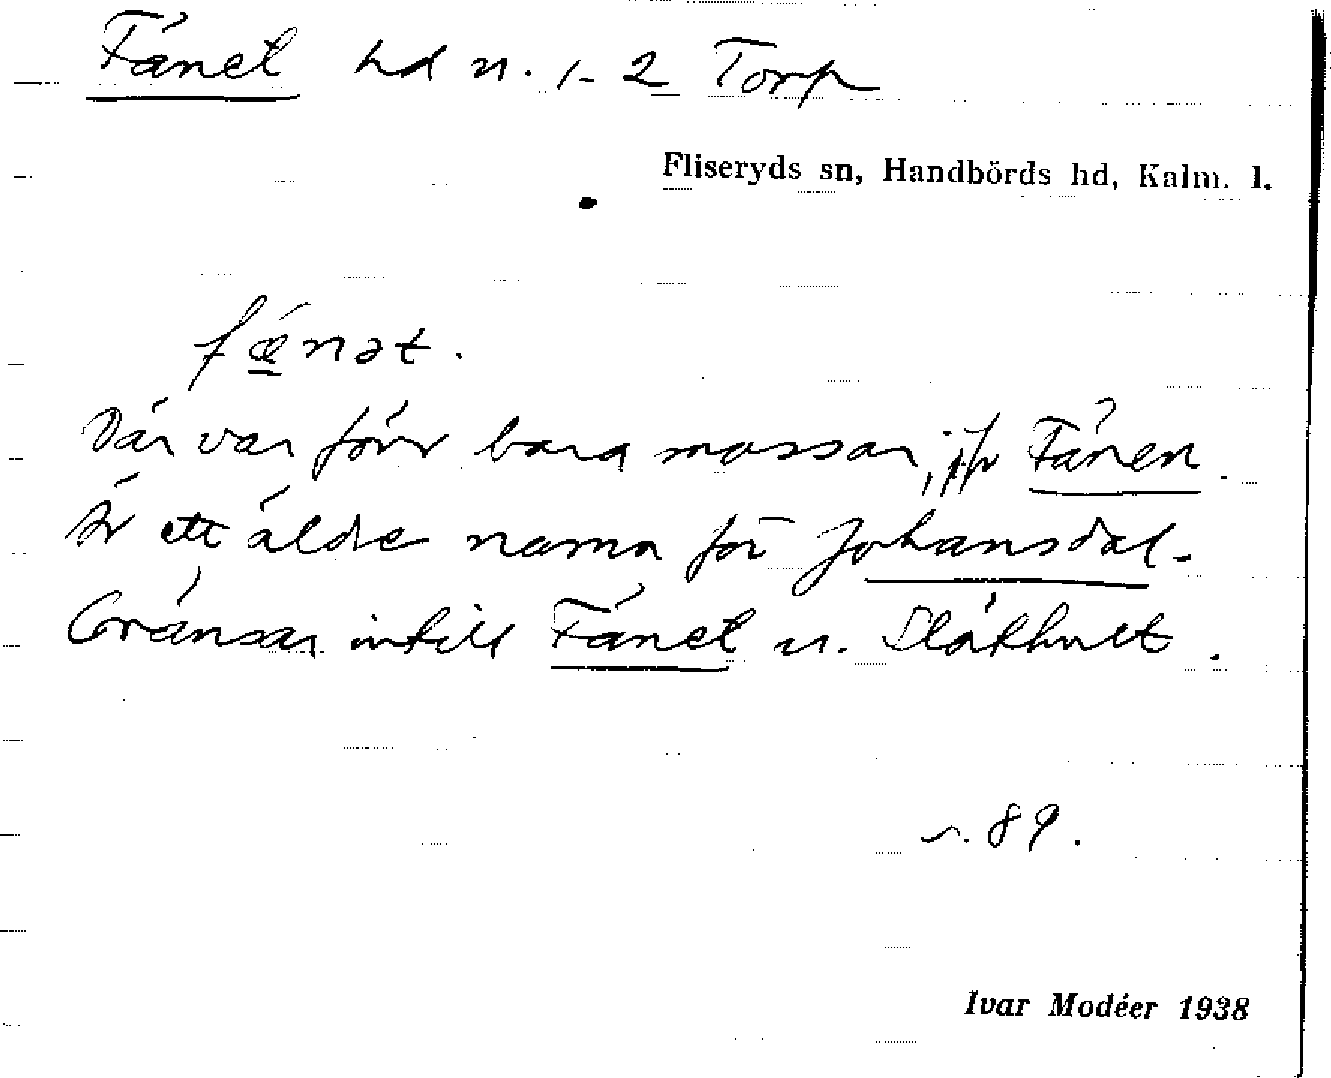 Fänet hd n. 1-2 Torp
Fliseryds sn, Handbörds hd, Kalm. l.
fǽnət.
Där var förr bara mossar, jfr Fänen.
Är ett äldre namn för Johansdal.
Gränsar intill Fänet u. Släthult.
s. 89.
Ivar Modéer 1938